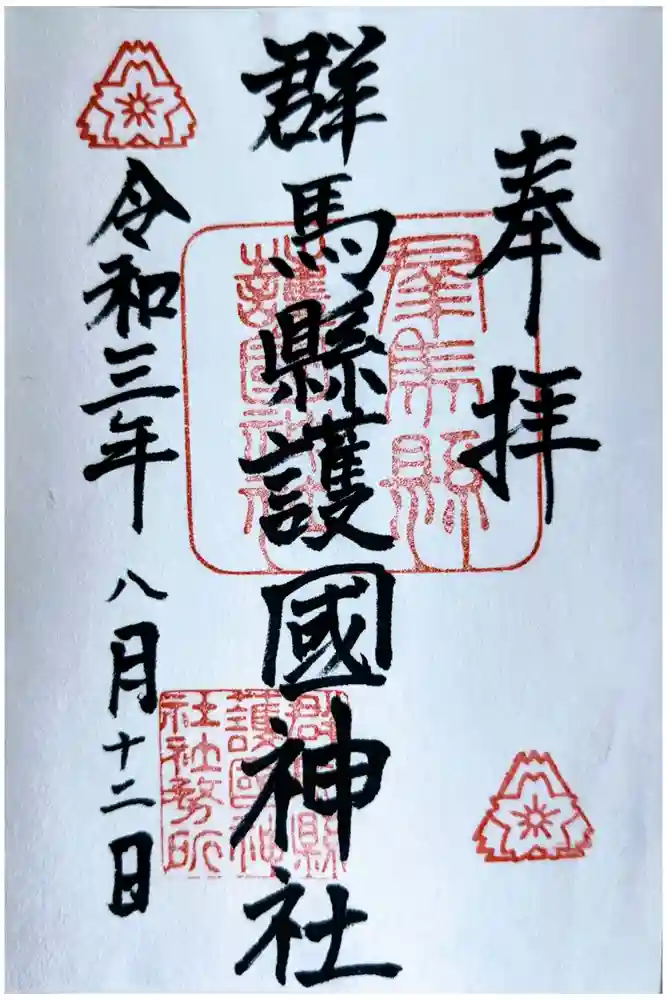 奉拝
群馬縣護國神社
群馬縣
護國神社
群馬縣
護國神
社社務所
令和三年八月十二日